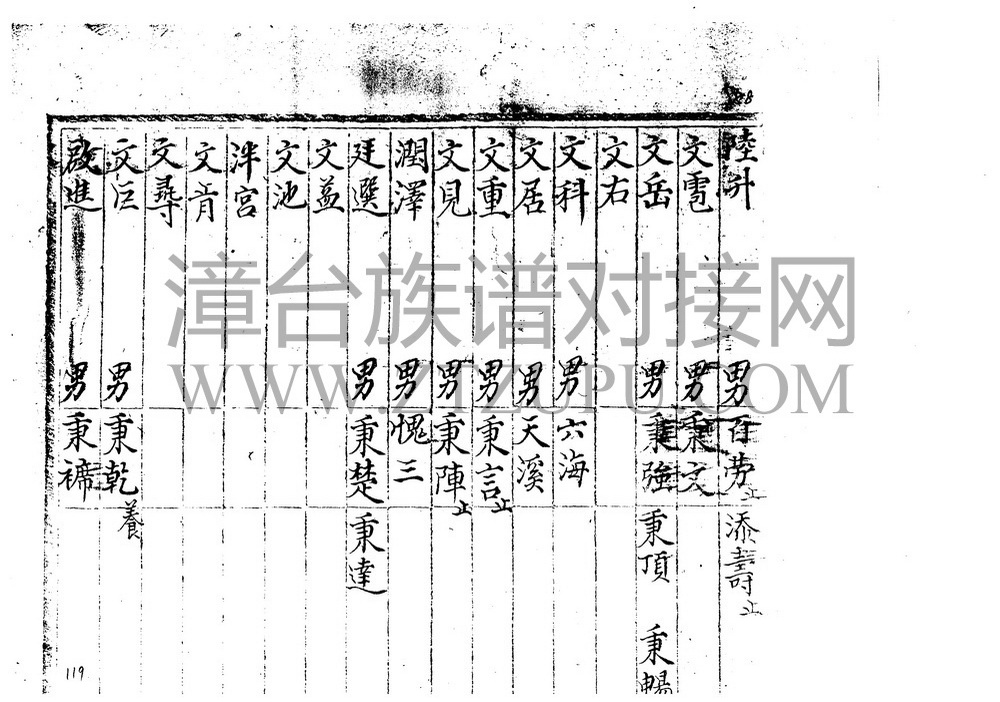 陸升 男 百劳止 添壽止
文雹 男 秉文
文岳 男 秉強 秉頂 秉暢
文右
文科 男 六海
文居 男 天溪
文重 男 秉言止
文見 男 秉陣止
潤澤 男 愧三
廷選 男 秉楚 秉達
文益
文池
泮宮
文肯
文尋
文巨 男 秉乾養
啟進 男 秉禘
119
漳台族谱对接网
WWW.ZTZUPU.COM